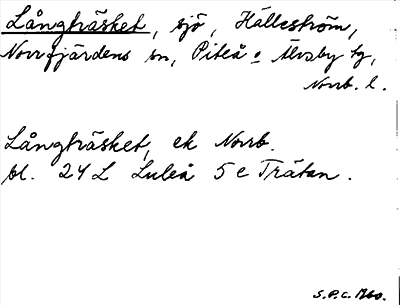 Långträsket, sjö, Hälleström,
Norrfjärdens sn, Piteå o Älvsby tg,
Norrb. l.
Långträsket, ek Norrb.
bl. 24 L Luleå 5 e Trätan.
S.P.C. 1960.